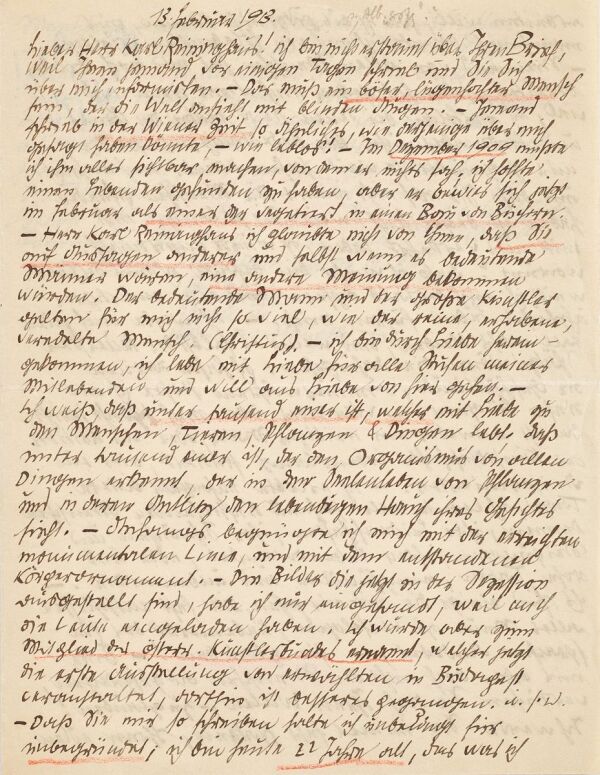 13 Februar 1913.
lieber Herr Karl Reininghaus! ich bin nicht erstaunt über Ihren Brief,
weil Ihnen jemand, vor einigen Tagen schrieb und Sie sich
über mich informierten. – Das muß ein böser, lügenhafter Mensch
sein, der die Welt ansieht mit blinden Augen. – Jemand
schrieb in der Wiener Zeit so ähnliches, wie derjenige über mich
gesagt haben könnte, – wie leblos! – Im Dezember 1909 mußte
ich ihm alles sichtbar machen, von dem er nichts sah, ich hoffte
einen Lebenden gefunden zu haben, aber er bewies sich jetzt
im Februar als einer der vegetiert in einem Bau von Büchern.
– Herr Karl Reininghaus ich glaubte nicht von Ihnen, daß Sie
auf Aussagen anderer und selbst wenn es bedeutende
Männer wären, eine andere Meinung bekommen
würden. Der bedeutende Mann und der große Künstler
gelten für mich nicht so viel, wie der reine, erhabene,
veredelte Mensch. (Christus). – ich bin durch Liebe herein-
gekommen, ich lebe mit Liebe für alle Seelen meiner
Mitlebenden und will aus Liebe von hier gehen. –
Ich weiß, daß unter tausend einer ist, welcher mit Liebe zu
den Menschen, Tieren, Pflanzen & Dingen lebt. Daß
unter tausend einer ist, der den Organismus von allen
Dingen erkennt, der in den Seelenleben von Pflanzen
und in deren Antlitz den lebendigen Hauch ihres Gesichtes
sieht. – Anfangs begnügte ich mich mit der erreichten
monumentalen Linie, und mit dem entstandenen
Körperornament. – Die Bilder die jetzt in der Sezession
ausgestellt sind, habe ich nur eingesandt, weil mich
die Leute eingeladen haben. Ich wurde aber zum
Mitglied des österr. Künstlerbundes ernannt, welcher jetzt
die erste Ausstellung von erwählten in Budapest
veranstaltet, dorthin ist besseres gegangen. u.s.w.
– Daß Sie mir so schreiben halte ich unbedingt für
unbegründet; ich bin heute 22 Jahre alt, das was ich